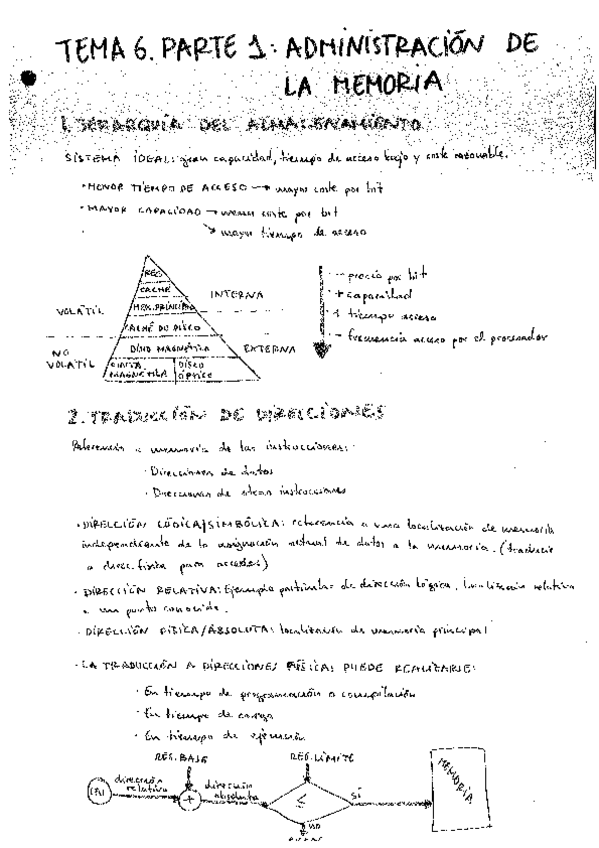 TEMA 6. PARTE 1: ADMINISTRACIÓN DE
LA MEMORIA
1. JERARQUÍA DEL ALMACENAMIENTO
SISTEMA IDEAL: gran capacidad, tiempo de acceso bajo y coste razonable.
· MENOR TIEMPO DE ACCESO → mayor coste por bit
· MAYOR CAPACIDAD → menor coste por bit
→ mayor tiempo de acceso
REG
CACHÉ
MEM. PRINCIPAL
CACHÉ DE DISCO
DISCO MAGNÉTICO
CINTA MAGNÉTICA
DISCO ÓPTICO
VOLÁTIL
NO VOLATIL
INTERNA
EXTERNA
- precio por bit
+ capacidad
+ tiempo acceso
- frecuencia acceso por el procesador
2. TRADUCCIÓN DE DIRECCIONES
Referencias a memoria de las instrucciones:
· Direcciones de datos
· Direcciones de otras instrucciones
· DIRECCIÓN LÓGICA/SIMBÓLICA: referencia a una localización de memoria
independiente de la asignación actual de datos a la memoria. (traducir
a direc. física para acceder)
· DIRECCIÓN RELATIVA: Ejemplo particular de dirección lógica. Localización relativa
a un punto conocido.
· DIRECCIÓN FÍSICA/ABSOLUTA: localización de memoria principal
· LA TRADUCCIÓN A DIRECCIONES FÍSICAS PUEDE REALIZARSE:
· En tiempo de programación o compilación
· En tiempo de carga
· En tiempo de ejecución
REG. BASE
REG. LÍMITE
CPU
dirección relativa
+
dirección absoluta
≤
SÍ
no
MEMORIA